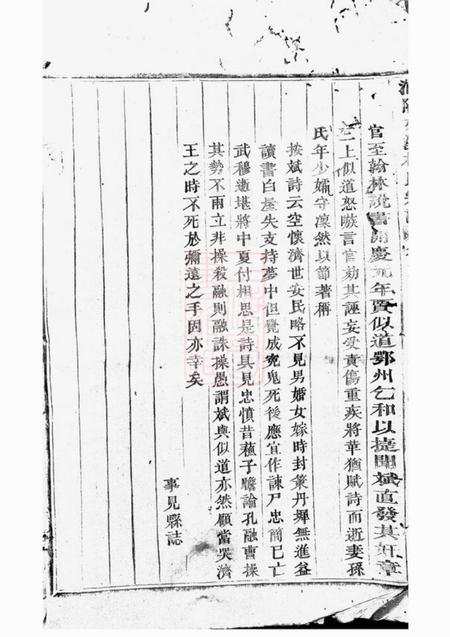 官至翰林說書開慶元年賈似道鄂州乞和以捷聞斌直發其奸章
二上似道怒嗾言官劾其誣妄受責傷重疾將革猶賦詩而逝妻孫
氏年少孀守凜然以節著稱
按斌詩云空懷濟世安民略不見男婚女嫁時封策丹墀無進益
讀書白屋失支持夢中但覺成冤鬼死後應宜作諫尸忠簡已亡
武穆逝堪將中夏付相思是詩具見忠憤昔蘓子瞻論孔融曹操
其勢不兩立非操殺融則融誅操愚謂斌與似道亦然顧當哭濟
王之時不死於彌遠之手因亦幸矣
事見縣誌